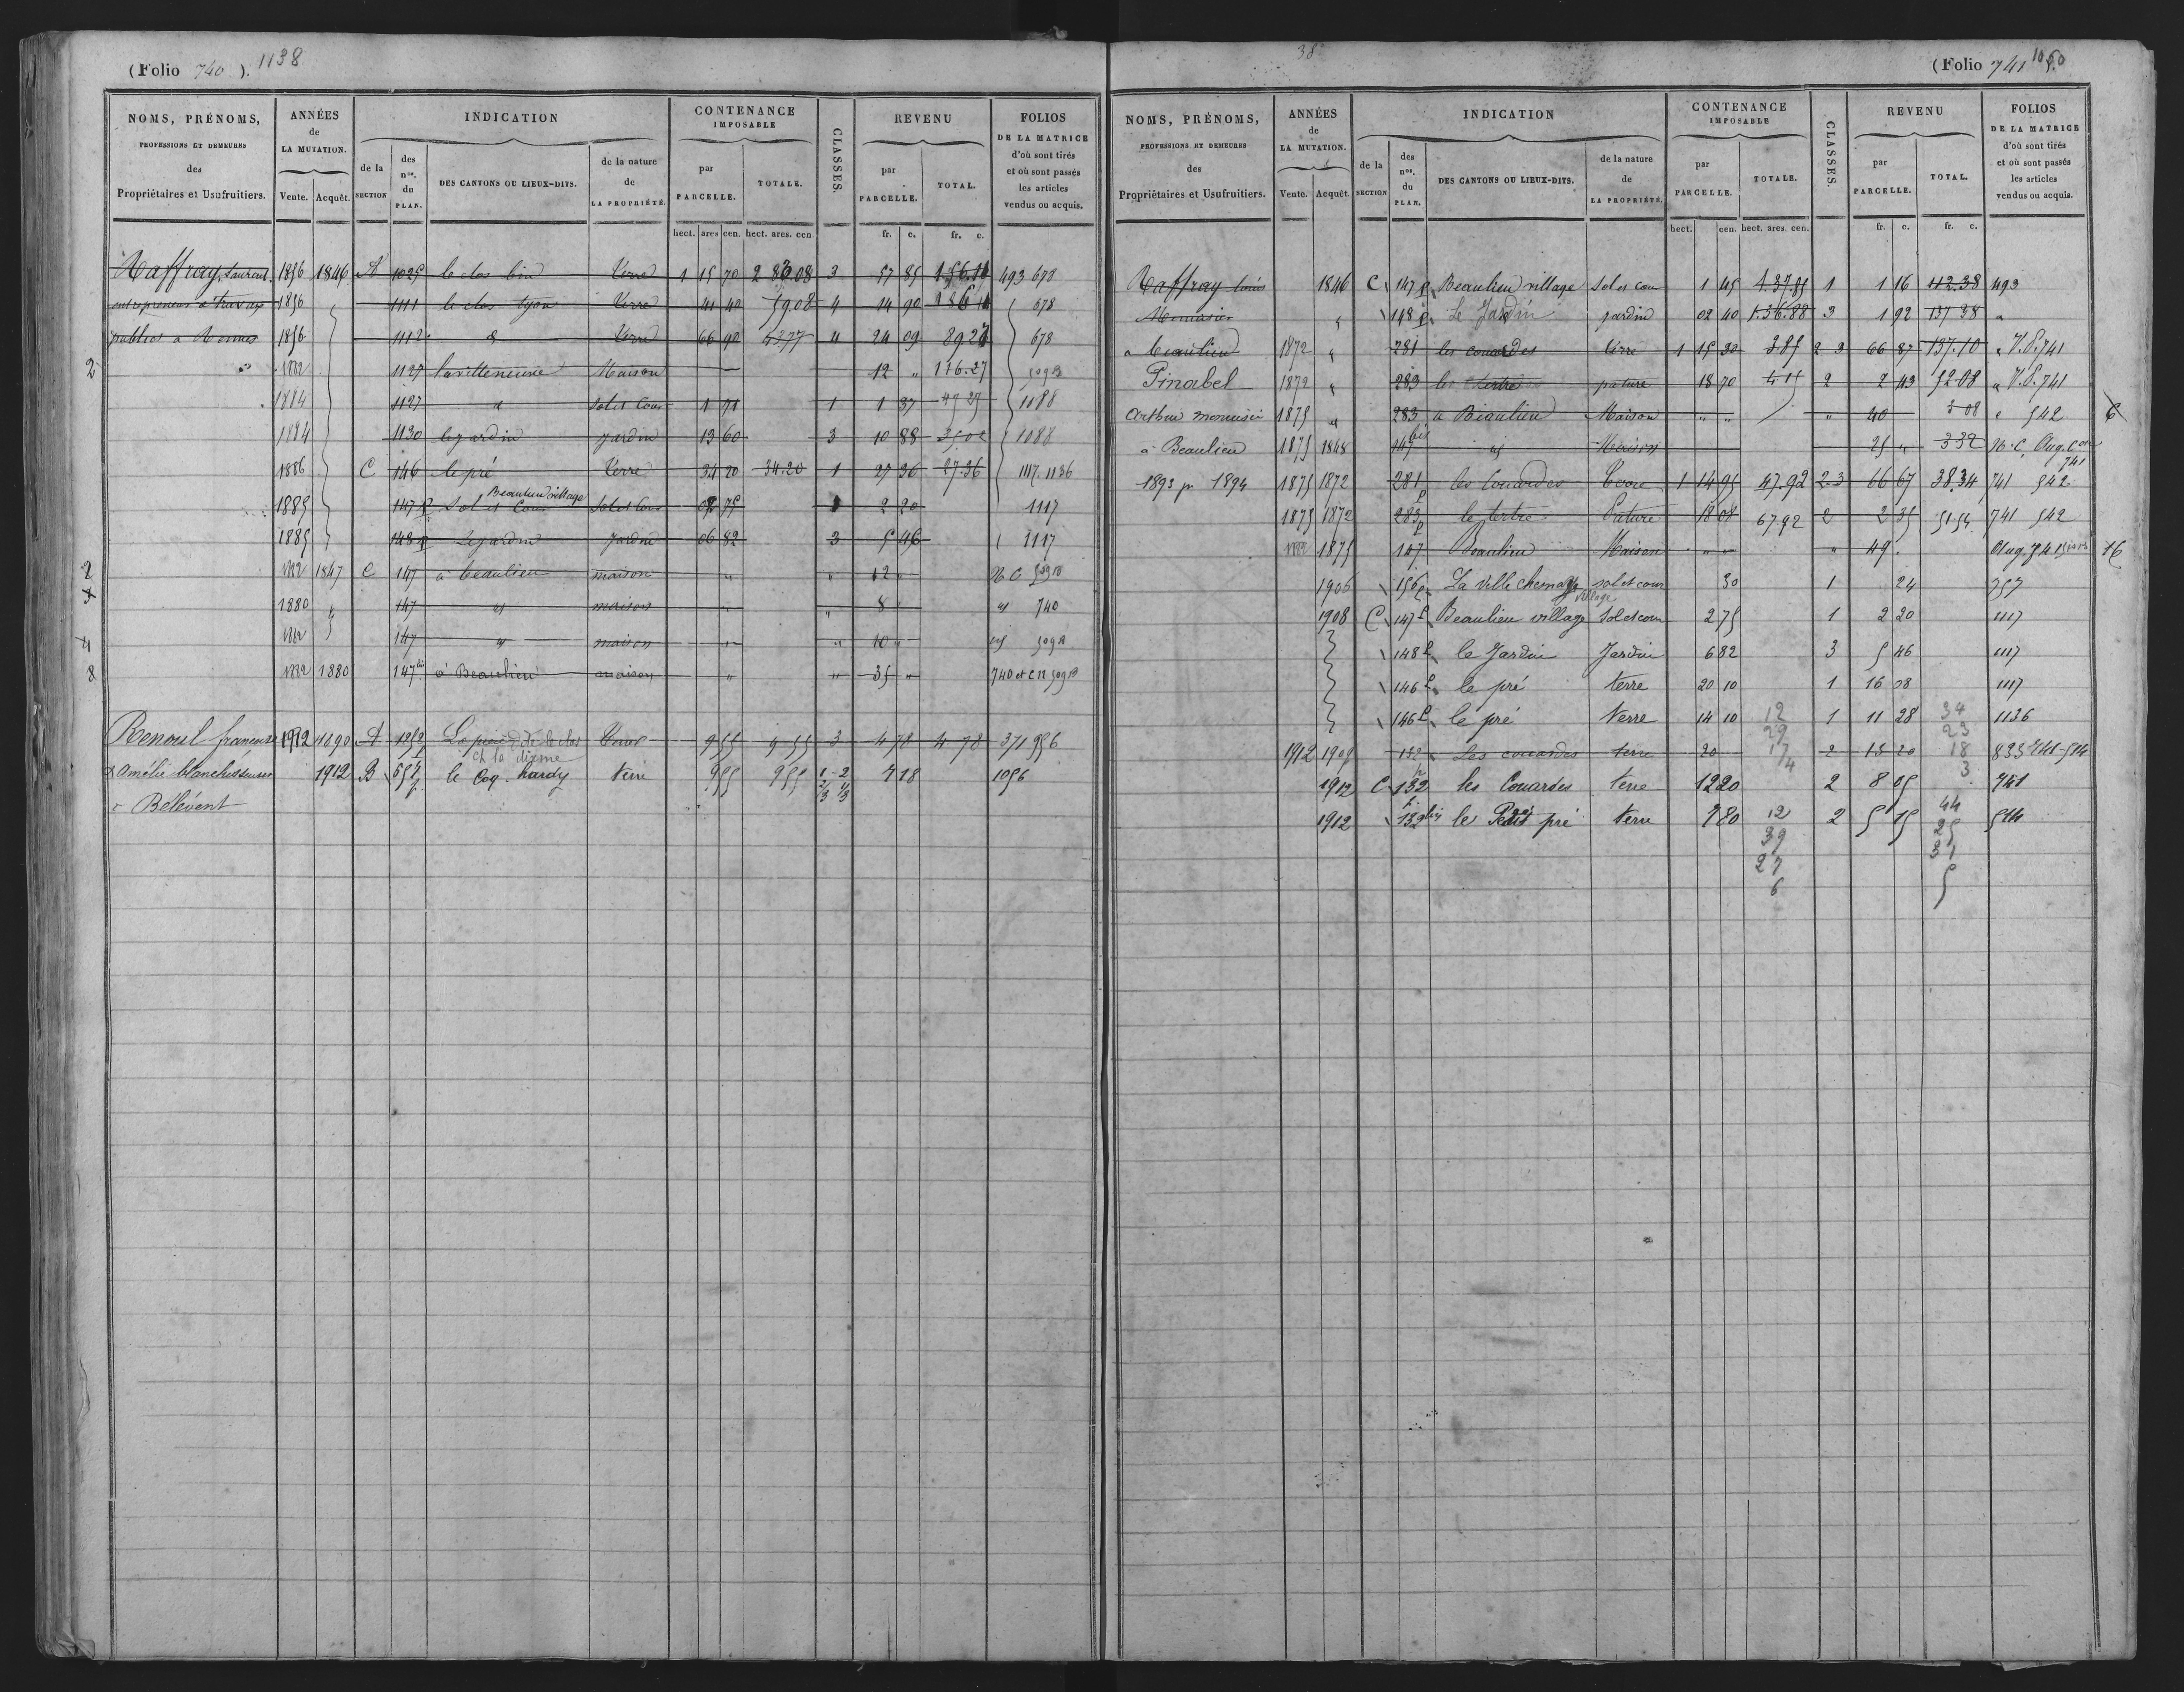 (Folio 740). 1138
NOMS, PRÉNOMS, PROFESSIONS ET DEMEURES des Propriétaires et Usufruitiers.
ANNÉES de LA MUTATION. Vente. Acquêt.
INDICATION de la SECTION des nos. du PLAN. DES CANTONS OU LIEUX-DITS. de la nature de LA PROPRIÉTÉ.
CONTENANCE IMPOSABLE par PARCELLE. TOTALE.
CLASSES.
REVENU par PARCELLE. TOTAL.
FOLIOS DE LA MATRICE d'où sont tirés et où sont passés les articles vendus ou acquis.
hect. ares cen. hect. ares. cen. fr. c. fr. c.
Raffray, Laurent. 1856 1846 A 1025 le clos 1 15 70 2 83.08 3 57 85 493 678
entrepreneur de travaux 1856 1111 le clos lyon Terre 41 40 59.08 4 14 90 678
publics a Rennes 1856 1112 d Terre 66 90 4 24 09 89.27 678
2 1882 1127 Maison 12 " 116.27 509B
1884 1127 " Sol et Cour 1 71 1 1 37 1088
1884 1130 le jardin jardin 13 60 3 10 88 1088
1886 C 146 le pré Terre 34 20 34.20 1 27 36 27.36 1117. 1136
1885 147 P Sol et Cour Beaulieu village Sol et Cour 02 75 2 20 1117
1885 148 P Le jardin Jardin 06 82 3 5 46 1117
2 1882 1847 C 147 à beaulieu maison " " 12 " N C 509B
1880 " 147 " maison " " 8 " " 740
4 1882 147 " maison " " 10 " 509B
8 1882 1880 147 bis à Beaulieu maison " " 35 " 740 et CN 509B
Renoul francoise 1912 1890 A 1252 La pièce Terre 9 55 9 55 3 4 78 4 78 371 956
ch la dixme
& Amélie blanchisseuse 1912 B 657 p. le Coq-hardy terre 955 955 1-2 2/3 1/3 718 1056
r Bélévent
38
(Folio 741 1050
NOMS, PRÉNOMS, PROFESSIONS ET DEMEURES des Propriétaires et Usufruitiers.
ANNÉES de LA MUTATION. Vente. Acquêt.
INDICATION de la SECTION des nos. du PLAN. DES CANTONS OU LIEUX-DITS. de la nature de LA PROPRIÉTÉ.
CONTENANCE IMPOSABLE par PARCELLE. TOTALE.
CLASSES.
REVENU par PARCELLE. TOTAL.
FOLIOS DE LA MATRICE d'où sont tirés et où sont passés les articles vendus ou acquis.
hect. cen. hect. ares. cen. fr. c. fr. c.
Raffray Louis 1846 C 147 P Beaulieu village Sol et cour 1 45 1.37.85 1 1 16 112.38 493
Menuisier " 148 P Le Jardin jardin 02 40 1.56.88 3 1 92 137 38 "
a beaulieu 1872 " 281 les couardes terre 1 15 30 385 2 3 66 87 137.10 " V.S. 741
Pinabel 1872 " 283 le tertre pature 18 70 2 2 43 52.08 " V.S. 741
Arthur menuisier 1875 " 283 a Beaulieu Maison " " " 40 3 08 " 542 6
à Beaulieu 1875 1848 147 bis " Maison 25 " 3 32 N.C. Aug. Con 741
1893 pr 1894 1875 1872 281 P les Couardes Terre 1 14 95 47.92 2.3 66 67 38.34 741 542
1875 1872 283 P le tertre Pature 18 08 67.92 2 2 35 51.54 741 542
1882 1875 147 Beaulieu Maison " " " 49. Aug. 741 16
1906 156 P La Ville chemage village sol et cour 30 1 24 757
1908 C 147 P Beaulieu village Sol et cour 2 75 1 2 20 1117
148 P le Jardin Jardin 6 82 3 5 46 1117
146 P le pré terre 20 10 1 16 08 1117
146 P le pré terre 14 10 12 1 11 28 34 1136
29 23
1912 1909 132 Les couardes terre 20 17 2 13 20 18 833 741-514
4 3
1912 C 132 p. les Couardes terre 12 20 2 8 05 741
1912 132 bis le Petit pré terre 7 80 12 2 5 15 44 514
39 25
27 31
6 5